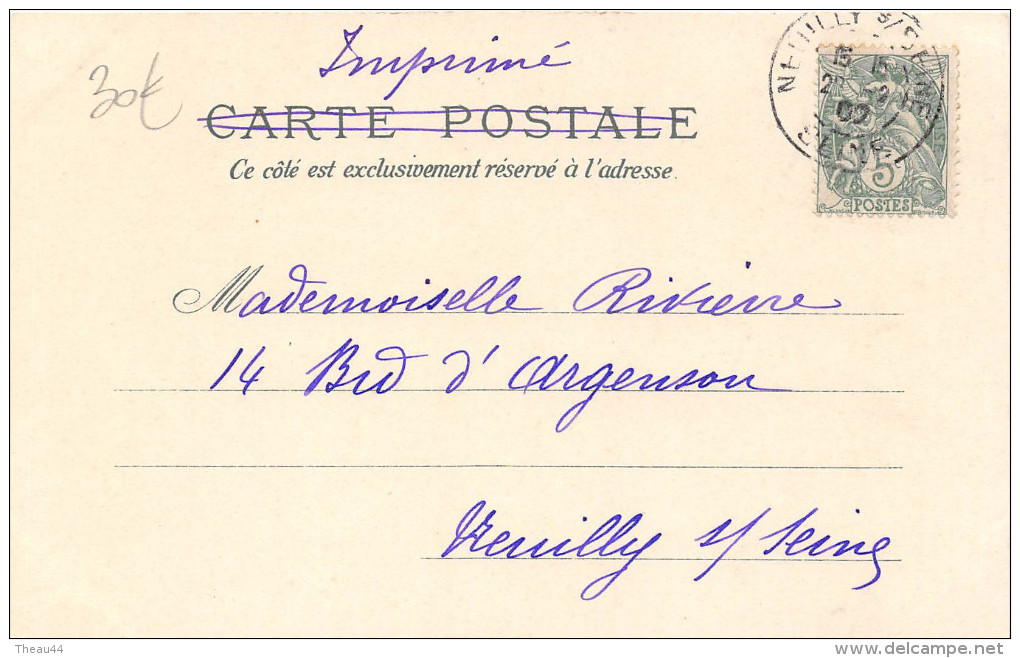 Imprimé
30€
CARTE POSTALE
Ce côté est exclusivement réservé à l'adresse.
NEUILLY S/SEINE
5
POSTES
Mademoiselle Rivierre
14 Bvd d'Argenson
Neuilly s/ Seine
Theau44
delcampe.net